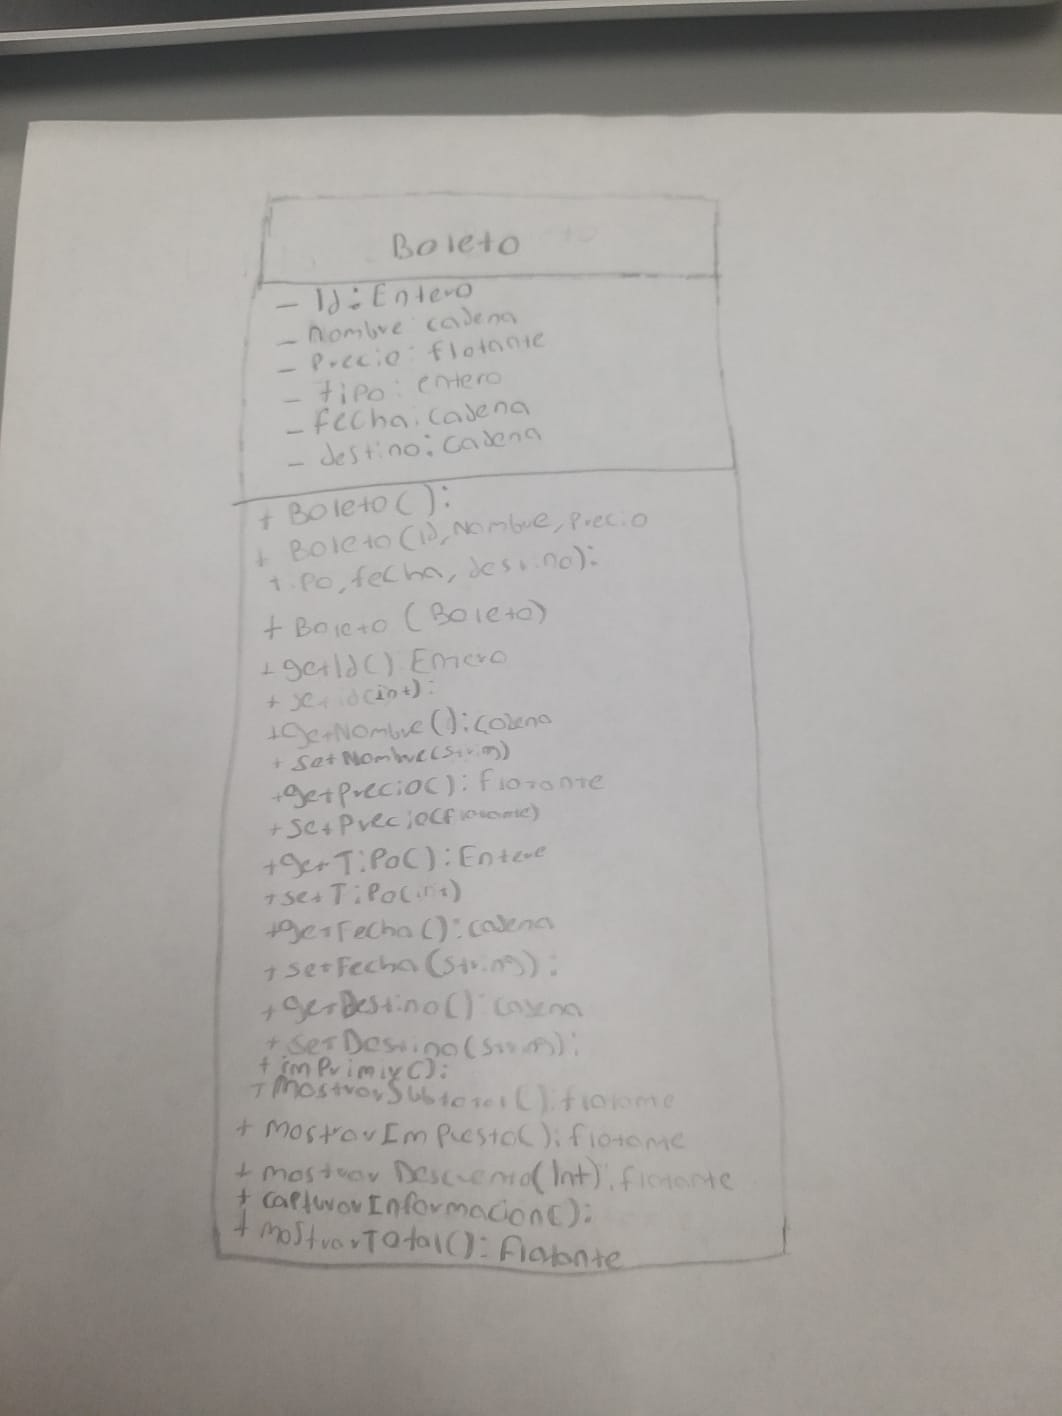 Boleto
- Id: Entero
- Nombre: cadena
- Precio: flotante
- tipo: entero
- fecha: cadena
- destino: cadena
+ Boleto():
+ Boleto(id, Nombre, Precio
tipo, fecha, destino):
+ Boleto (Boleto)
+ getId(): Entero
+ setid(int):
+ getNombre(): cadena
+ setNombre(string)
+ getPrecio(): flotante
+ setPrecio(flotante)
+ getTipo(): Entero
+ setTipo(int)
+ getFecha(): cadena
+ setFecha(string):
+ getDestino(): cadena
+ setDestino(string):
+ imPrimir():
+ MostrarSubtotal(): flotante
+ mostrarImPuesto(): flotante
+ mostrar Descuento(Int): flotante
+ capturarInformacion():
+ mostrarTotal(): flotante